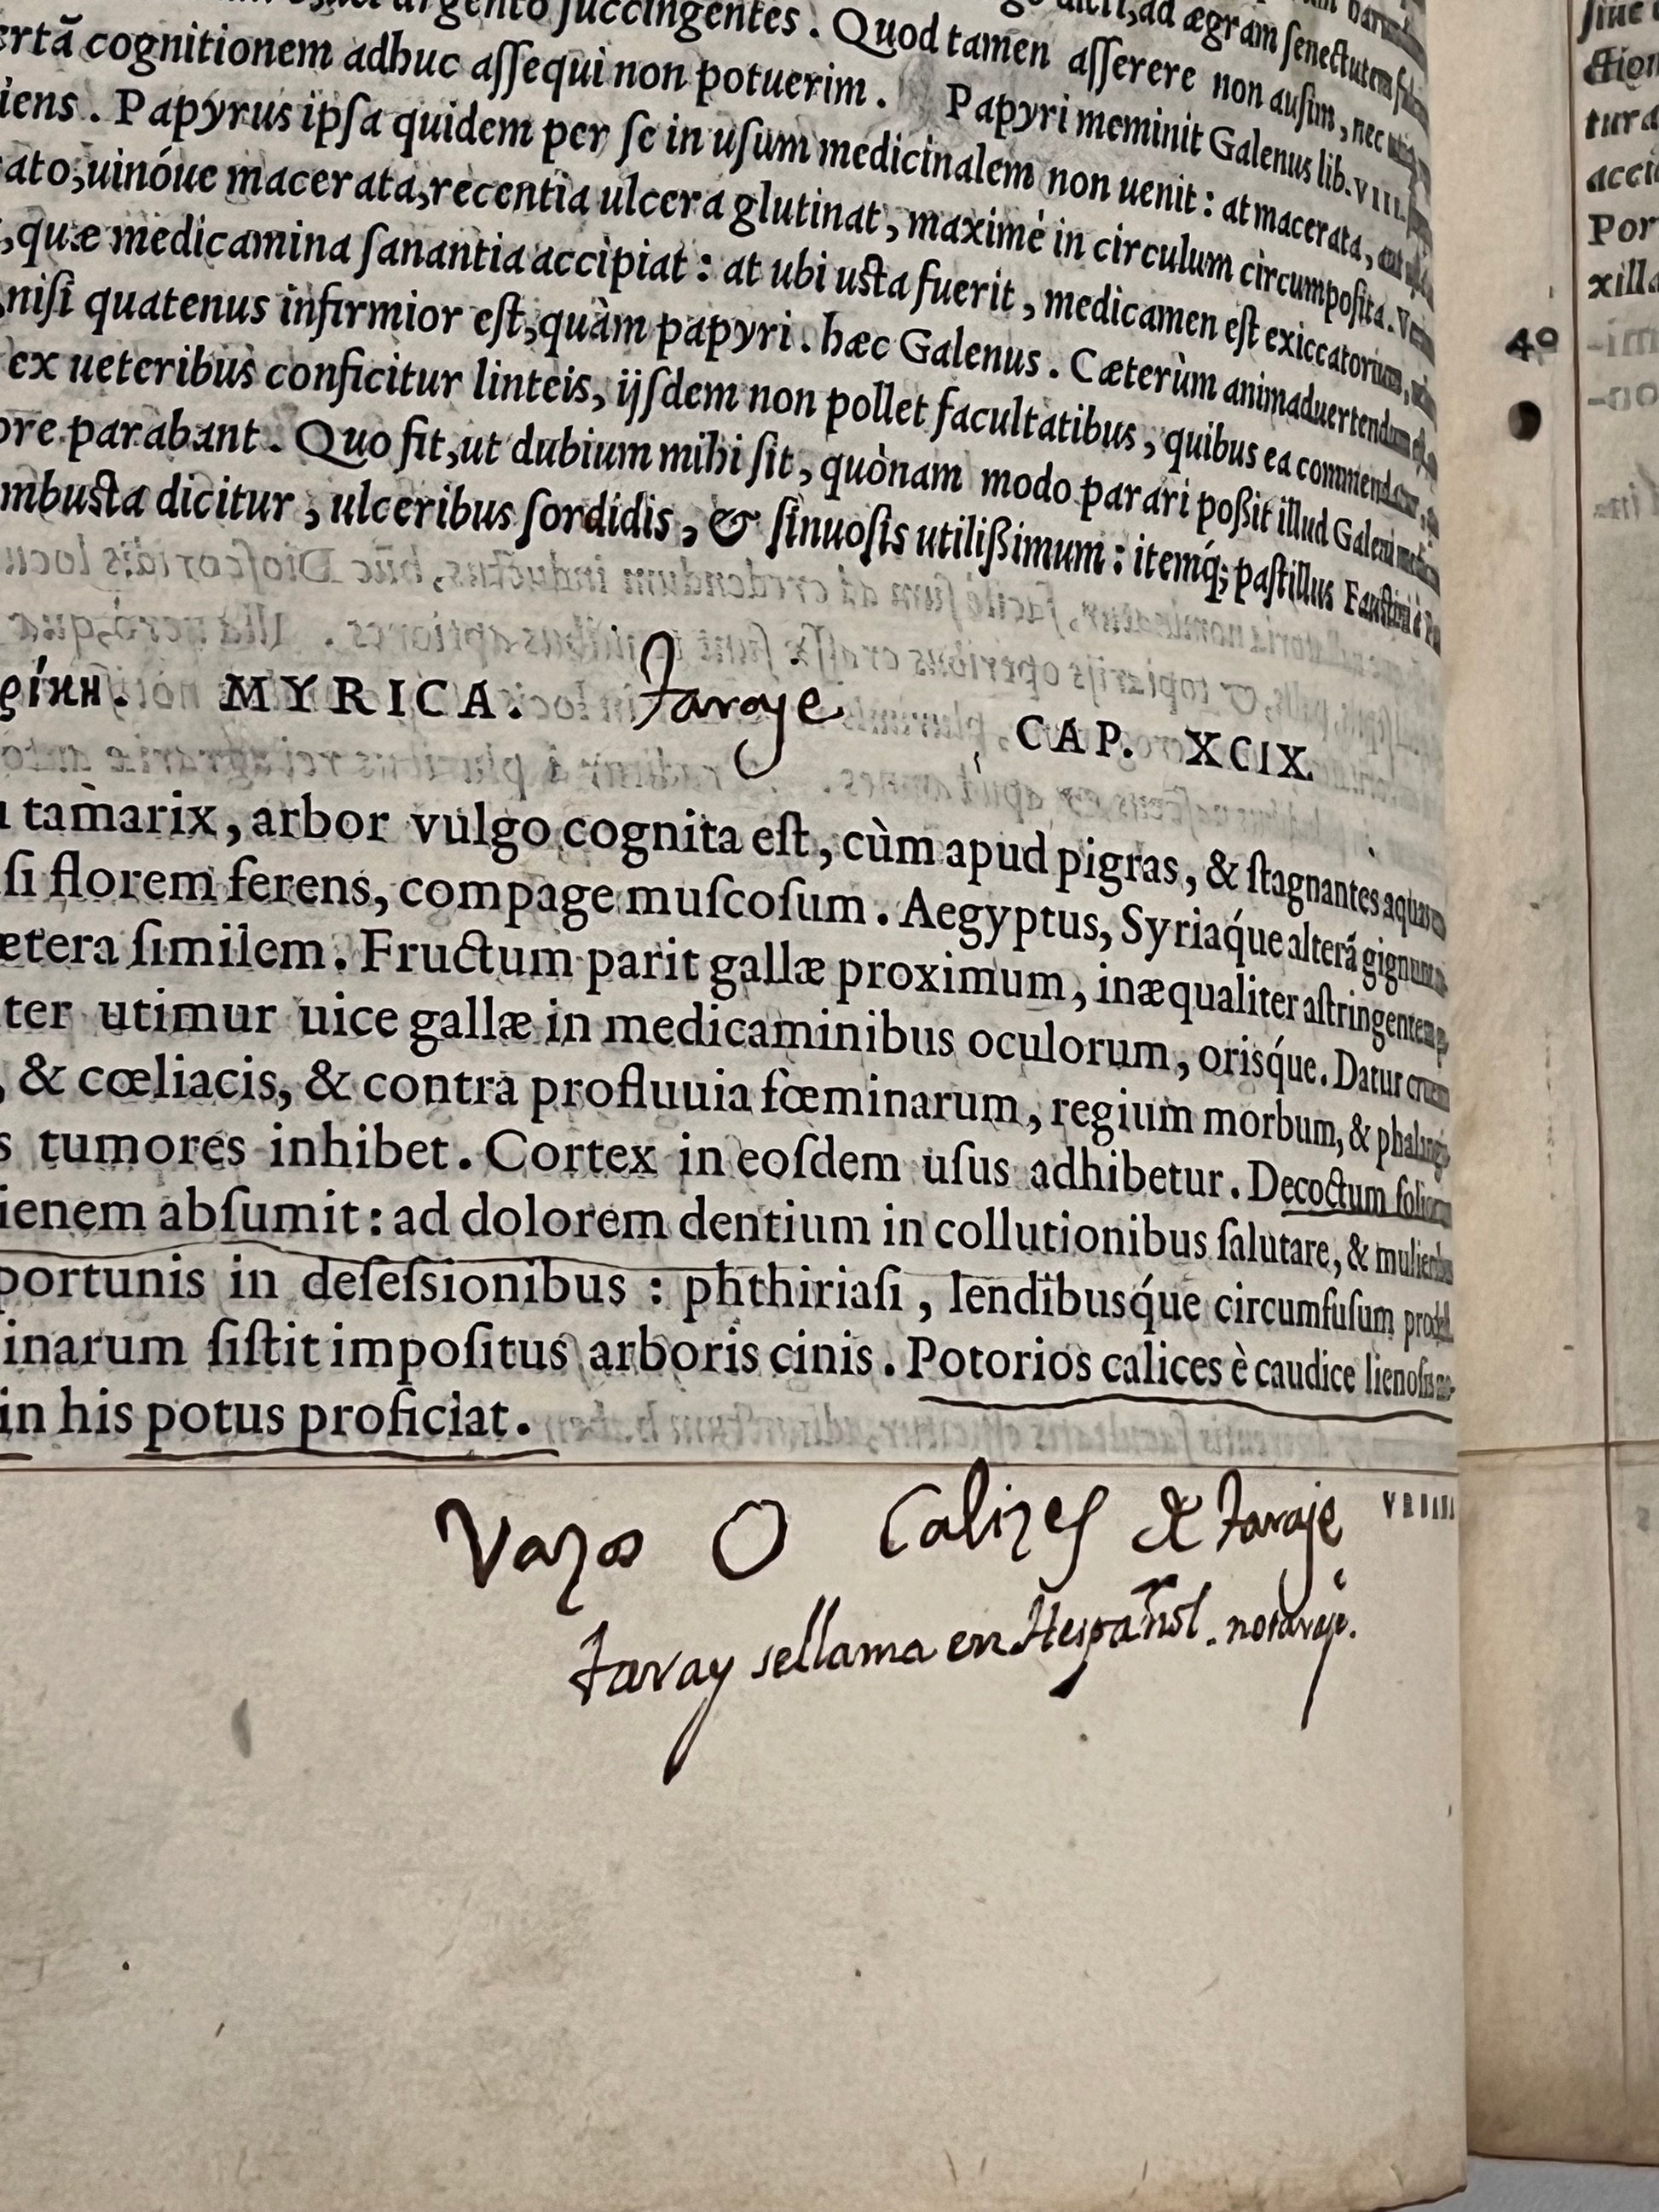 argento ſuccingentes. Quod tamen aſſerere non auſim, nec
certã cognitionem adhuc aſſequi non potuerim. Papyri meminit Galenus lib. VIII.
iens. Papyrus ipſa quidem per ſe in uſum medicinalem non uenit: at macerata, aut
ato, uinóue macerata, recentia ulcera glutinat, maximè in circulum circumpoſita. Verum
, quæ medicamina ſanantia accipiat: at ubi uſta fuerit, medicamen eſt exiccatorium,
niſi quatenus infirmior eſt, quàm papyri. hæc Galenus. Cæterùm animaduertendum eſt,
ex ueteribus conficitur linteis, ijſdem non pollet facultatibus, quibus ea commendatur,
ore parabant. Quo fit, ut dubium mihi ſit, quònam modo parari poßit illud Galeni
mbuſta dicitur, ulceribus ſordidis, & ſinuoſis utilißimum: itemq́; paſtillus Fauſtini à
ρίκη. MYRICA. Taraye CAP. XCIX.
tamarix, arbor vulgo cognita eſt, cùm apud pigras, & ſtagnantes aquas
ſi florem ferens, compage muſcoſum. Aegyptus, Syriaq́ue alterā gignunt
ætera ſimilem. Fructum parit gallæ proximum, inæqualiter aſtringentem
ter utimur uice gallæ in medicaminibus oculorum, orisq́ue. Datur
, & cœliacis, & contra profluuia fœminarum, regium morbum, &
s tumores inhibet. Cortex in eoſdem uſus adhibetur. Decoctum
ienem abſumit: ad dolorem dentium in collutionibus ſalutare, &
portunis in deſeſsionibus: phthiriaſi, lendibusq́ue circumfuſum
inarum ſiſtit impoſitus arboris cinis. Potorios calices è caudice lienoſis
in his potus proficiat.
Vazos O Calizes de taraje
taray sellama en Hespañol. notaraje.
40